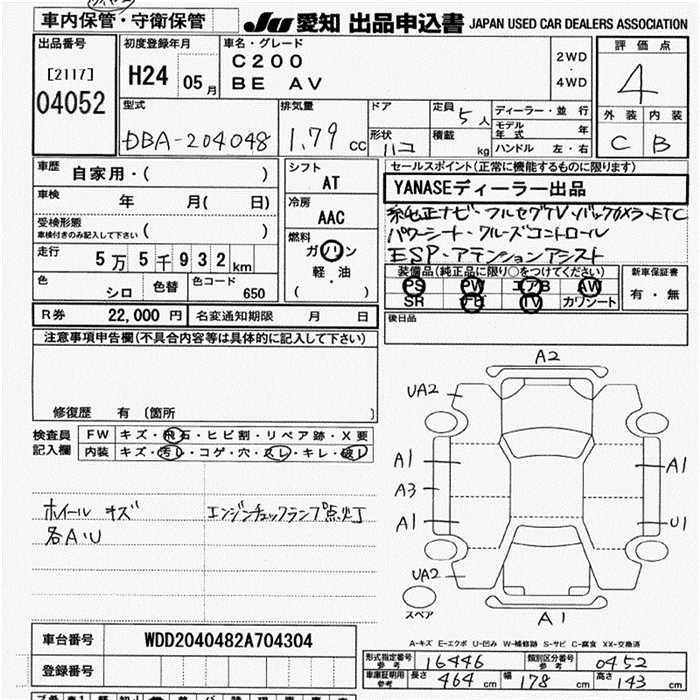 車内保管・守衛保管
JU 愛知 出品申込書 JAPAN USED CAR DEALERS ASSOCIATION
出品番号
[2117]
04052
初度登録年月
H24 05月
車名・グレード
C200
BE AV
2WD
・
4WD
評価点
4
外装 内装
C B
型式
DBA-204048
排気量
1.79 cc
ドア
形状
ハコ
定員 5人
積載 kg
ディーラー・並行
モデル年式 年
ハンドル 左・右
車歴 自家用・( )
車検 年 月( 日)
受検形態
車検付きのみ記入して下さい ( )
走行 5万5千932km
色 シロ 色替 色コード 650
シフト
AT
冷房
AAC
燃料
ガソリン
軽・油
( )
セールスポイント(正常に機能するものに限ります)
YANASEディーラー出品
純正ナビ・フルセグTV・バックカメラ・ETC
パワーシート・クルーズコントロール
ESP・アテンションアシスト
装備品(純正品に限り○をつけてください)
PS PW エアB AW
SR ナビ TV カワシート
新車保証書
有・無
R券 22,000円 名変通知期限 月 日
後日品
注意事項申告欄(不具合内容等は具体的に記入して下さい)
修復歴 有 〔箇所 〕
検査員
記入欄
FW キズ・飛石・ヒビ割・リペア跡・X要
内装 キズ・汚レ・コゲ・穴・スレ・キレ・破レ
ホイール キズ
各A・U
エンジンチェックランプ点灯
A2
UA2
A1
A1
A3
A1
U1
UA2
スペア
A1
A-キズ E-エクボ U-凹み W-補修跡 S-サビ C-腐食 XX-交換済
車台番号 WDD2040482A704304
登録番号
形式指定番号 参考 16446 類別区分番号 参考 0452
車庫証明用 参考 長さ 464cm 幅 178cm 高さ 143cm